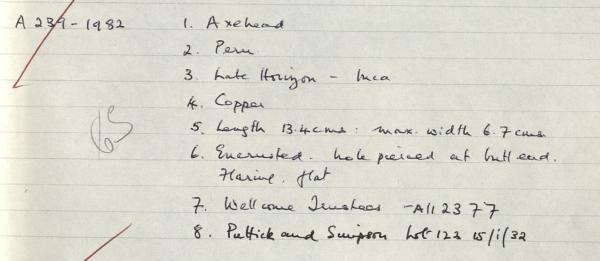 A 239-1982 1. Axehead
2. Peru
3. Late Horizon - Inca
4. Copper
5. Length 13.4cms: max. width 6.7cms
6. Encrusted. hole pierced at butt end.
Flaring. flat
7. Wellcome Trustees -A112377
8. Puttick and Simpson Lot 123 15/1/32
65